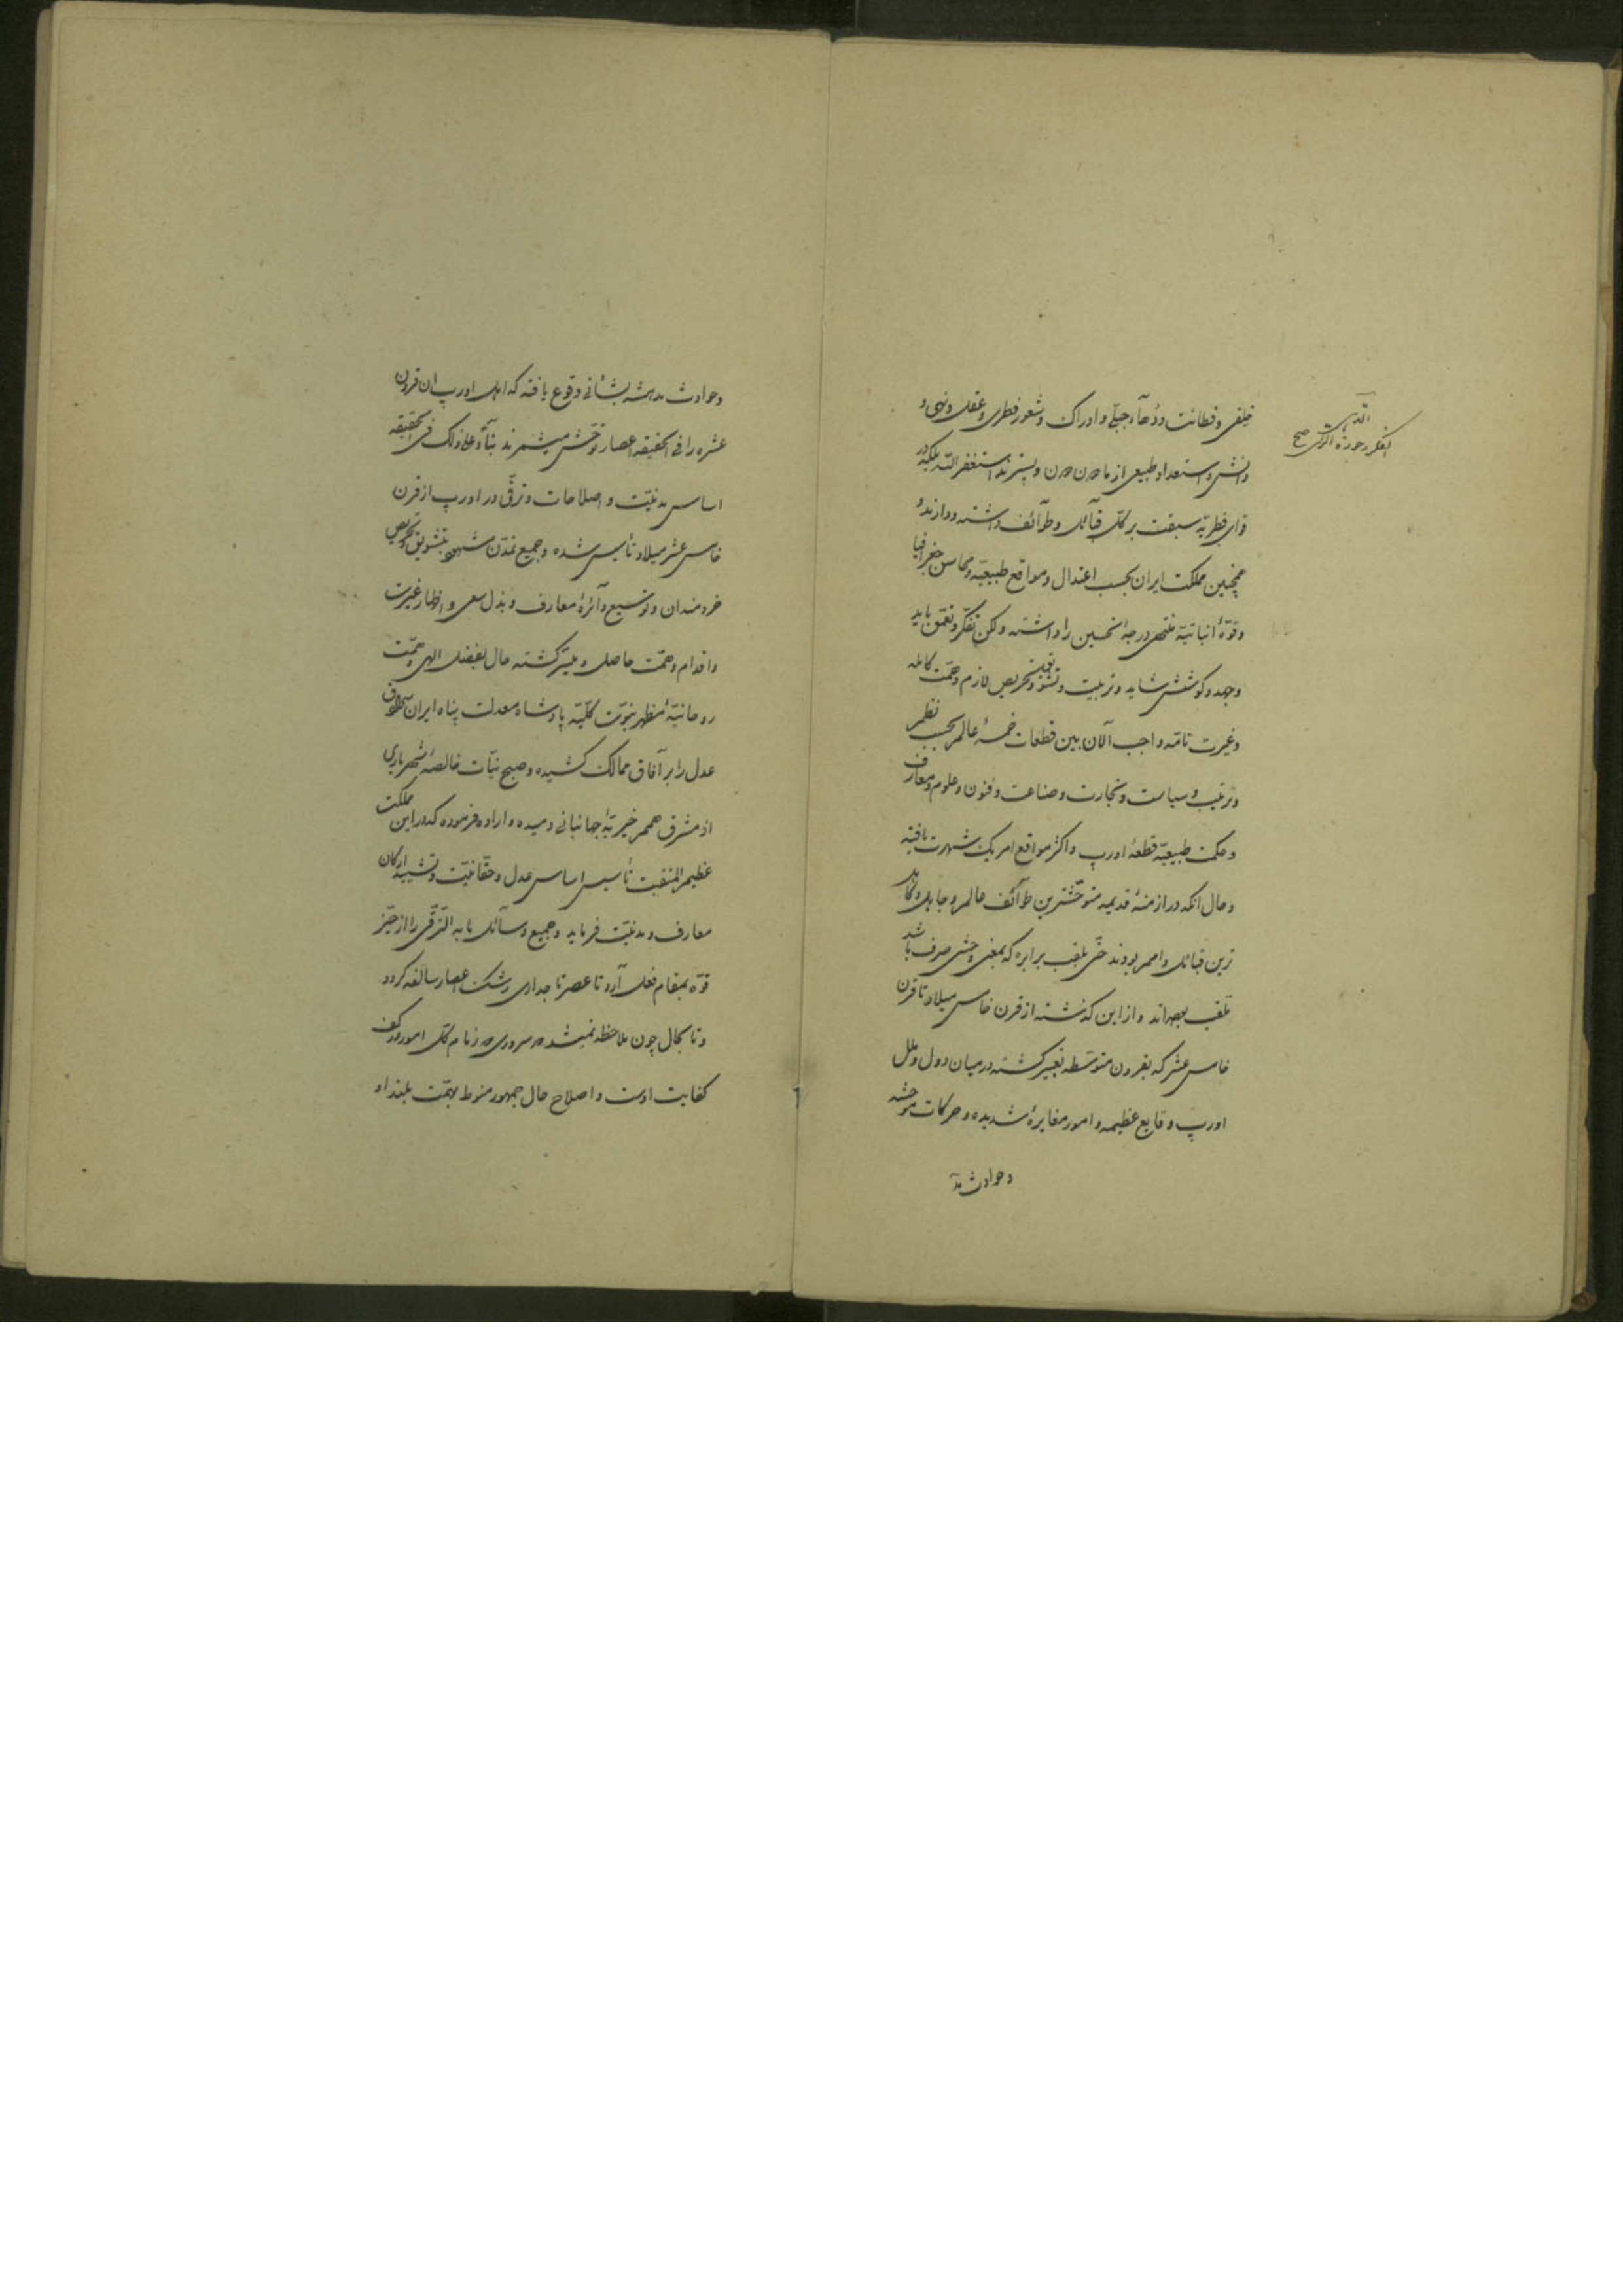 خلقی و فطانت و دُهآء جبلّی و ادراک و شعور فطری و عقل و نهی و
دانش و استعداد طبیعی از مادون دون و پستریم استغفر اللّه بلکه در
قوای فطریّه سبقت بر کلّ قبآئل و طوآئف داشته و دارند و
همچنین مملکت ایران بحسب اعتدال و مواقع طبیعیّه و محاسن جغرافیا
و قوّهٔ انباتیّه منتهی درجه تحسین را داشته ولکن تفکّر و تعمّق باید
و جهد و کوشش شاید و تربیت و تشویق و تحریص لازم و همّت کامله
و غیرت تامّه واجب الآن بین قطعات خمسهٔ عالم بحسب نظم
و ترتیب و سیاست و تجارت و صناعت و فنون و علوم و معارف
و حکمت طبیعیّه قطعهٔ اورپ و اکثر مواقع امریک شهرت یافته
و حال انکه در ازمنهٔ قدیمه متوحّشترین طوآئف عالم و جاهل و تکاهل
ترین قبائل و امم بودند حتّی بلقب برابره که بمعنی وحشی صرف باشد
تلقیب بودند و از این گذشته از قرن خامس میلاد تا قرن
خامس عشر که بقرون متوسّطه تعبیر گشته در میان دول و ملل
اورپ وقایع عظیمه و امور مغایرهٔ شدیده و حرکات موحشه
و حوادث مد
و حوادث مدهشه بشأنی وقوع یافته که اهل اورپ ان قرون
عشره را فی الحقیقه اعصار توحّش میشمرند بنآءً علی ذلک فی الحقیقه
اساس مدنیّت و اصلاحات و ترقّی در اورپ از قرن
خامس عشر میلاد تأسیس شده و جمیع تمدّن مشهود بتشویق و تحریص
خردمندان و توسیع دآئرهٔ معارف و بذل سعی و اظهار غیرت
و اقدام و همّت حاصل و میسّر گشته حال بفضل الهی و همّت
روحانیّهٔ مظهر نبوّت کلّیّه پادشاه معدلت پناه ایران سرادق
عدل را بر آفاق ممالک کشیده و صبح نیّات خالصهٔ شهریاری
از مشرق همم خیریّهٔ جهانبانی دمیده و اراده فرموده که در این مملکت
عظیم المنقبت تأسیس اساس عدل و حقّانیّت و تشیید ارکان
معارف و مدنیّت فرماید و جمیع وسآئل ما به الترقّی را از حیّز
قوّه بمقام فعل آرد تا عصر تاجداری رشک اعصار سالفه گردد
و تا بحال چون ملاحظه نمیشد که سروری که زمام کلّ امور در کف
کفایت اوست و اصلاح حال جمهور منوط بهمّت بلند او